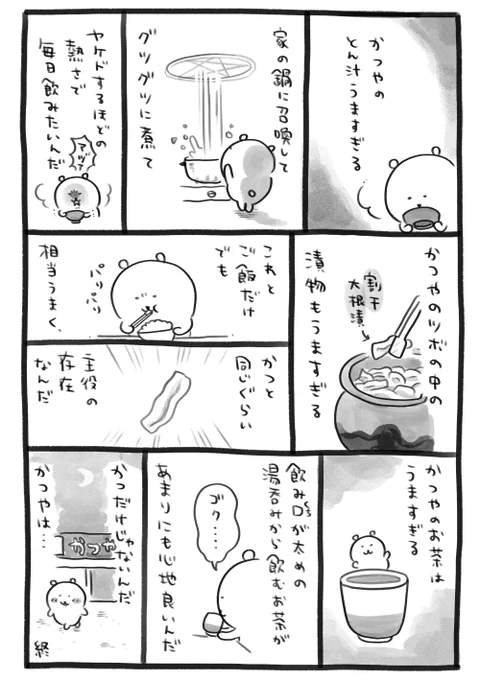 かつやの
とん汁うますぎる
家の鍋に召喚して
グツグツに煮て
ヤケドするほどの
熱さで
毎日飲みたいんだ
アッツァ
かつやのツボの中の
漬物もうますぎる
割干
大根漬
これと
ご飯だけ
でも
相当うまく、
パリパリ
かつと
同じぐらい
主役の
存在
なんだ
かつやのお茶は
うますぎる
飲み口が太めの
湯呑みから飲むお茶が
あまりにも心地良いんだ
ゴク……
かつだけじゃないんだ
かつやは…
かつや
終